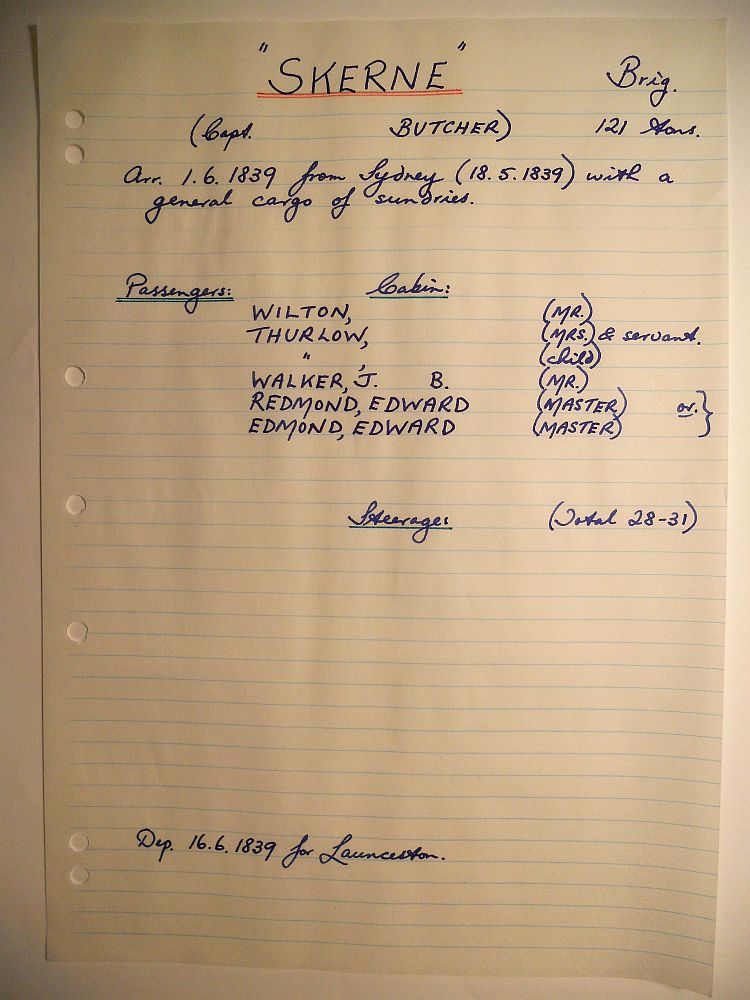 "SKERNE" Brig.
(Capt. BUTCHER) 121 tons.
Arr. 1.6.1839 from Sydney (18.5.1839) with a
general cargo of sundries.
Passengers: Cabin:
WILTON, (MR.)
THURLOW, (MRS.) & servant.
" , (child)
WALKER, J. B. (MR.)
REDMOND, EDWARD (MASTER) or. }
EDMOND, EDWARD (MASTER)
Steerage: (Total 28-31)
Dep. 16.6.1839 for Launceston.